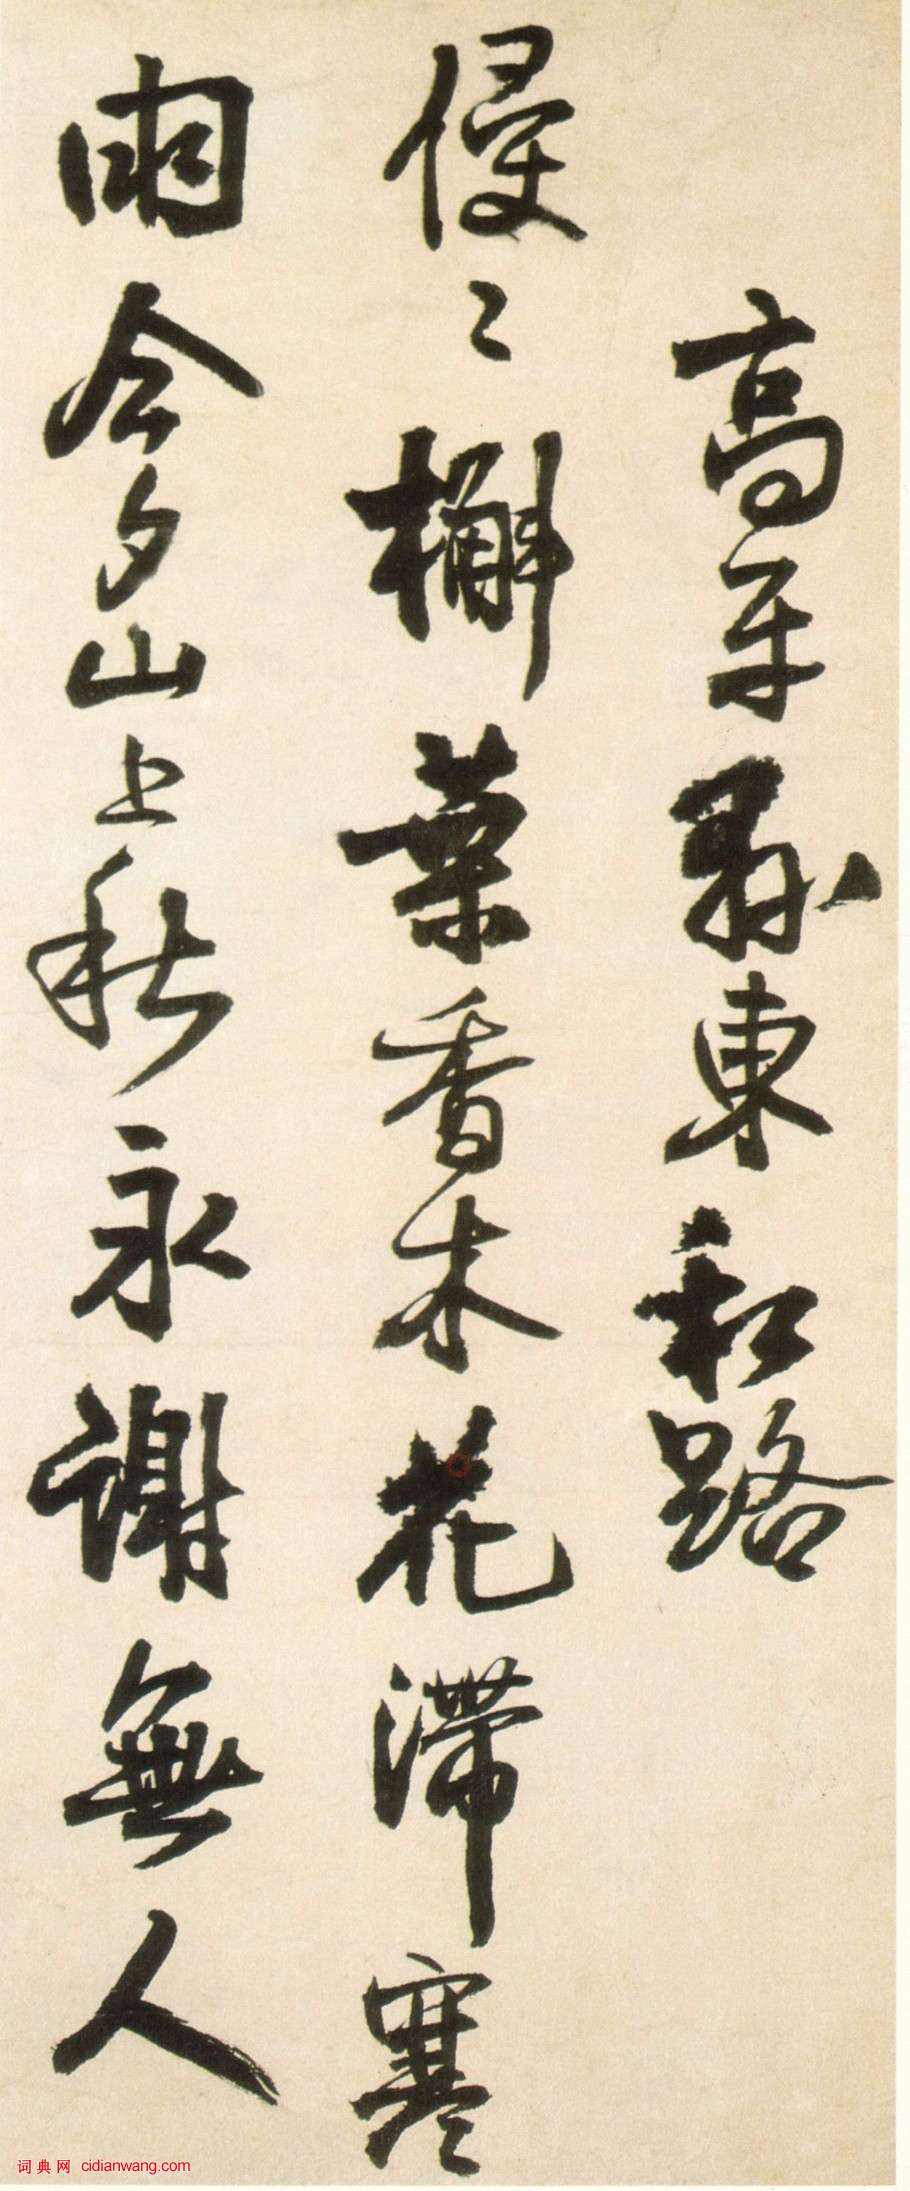 高平縣東私路
侵々槲葉香木花滯寒
雨今夕山上秋永謝無人
词典网 cidianwang.com